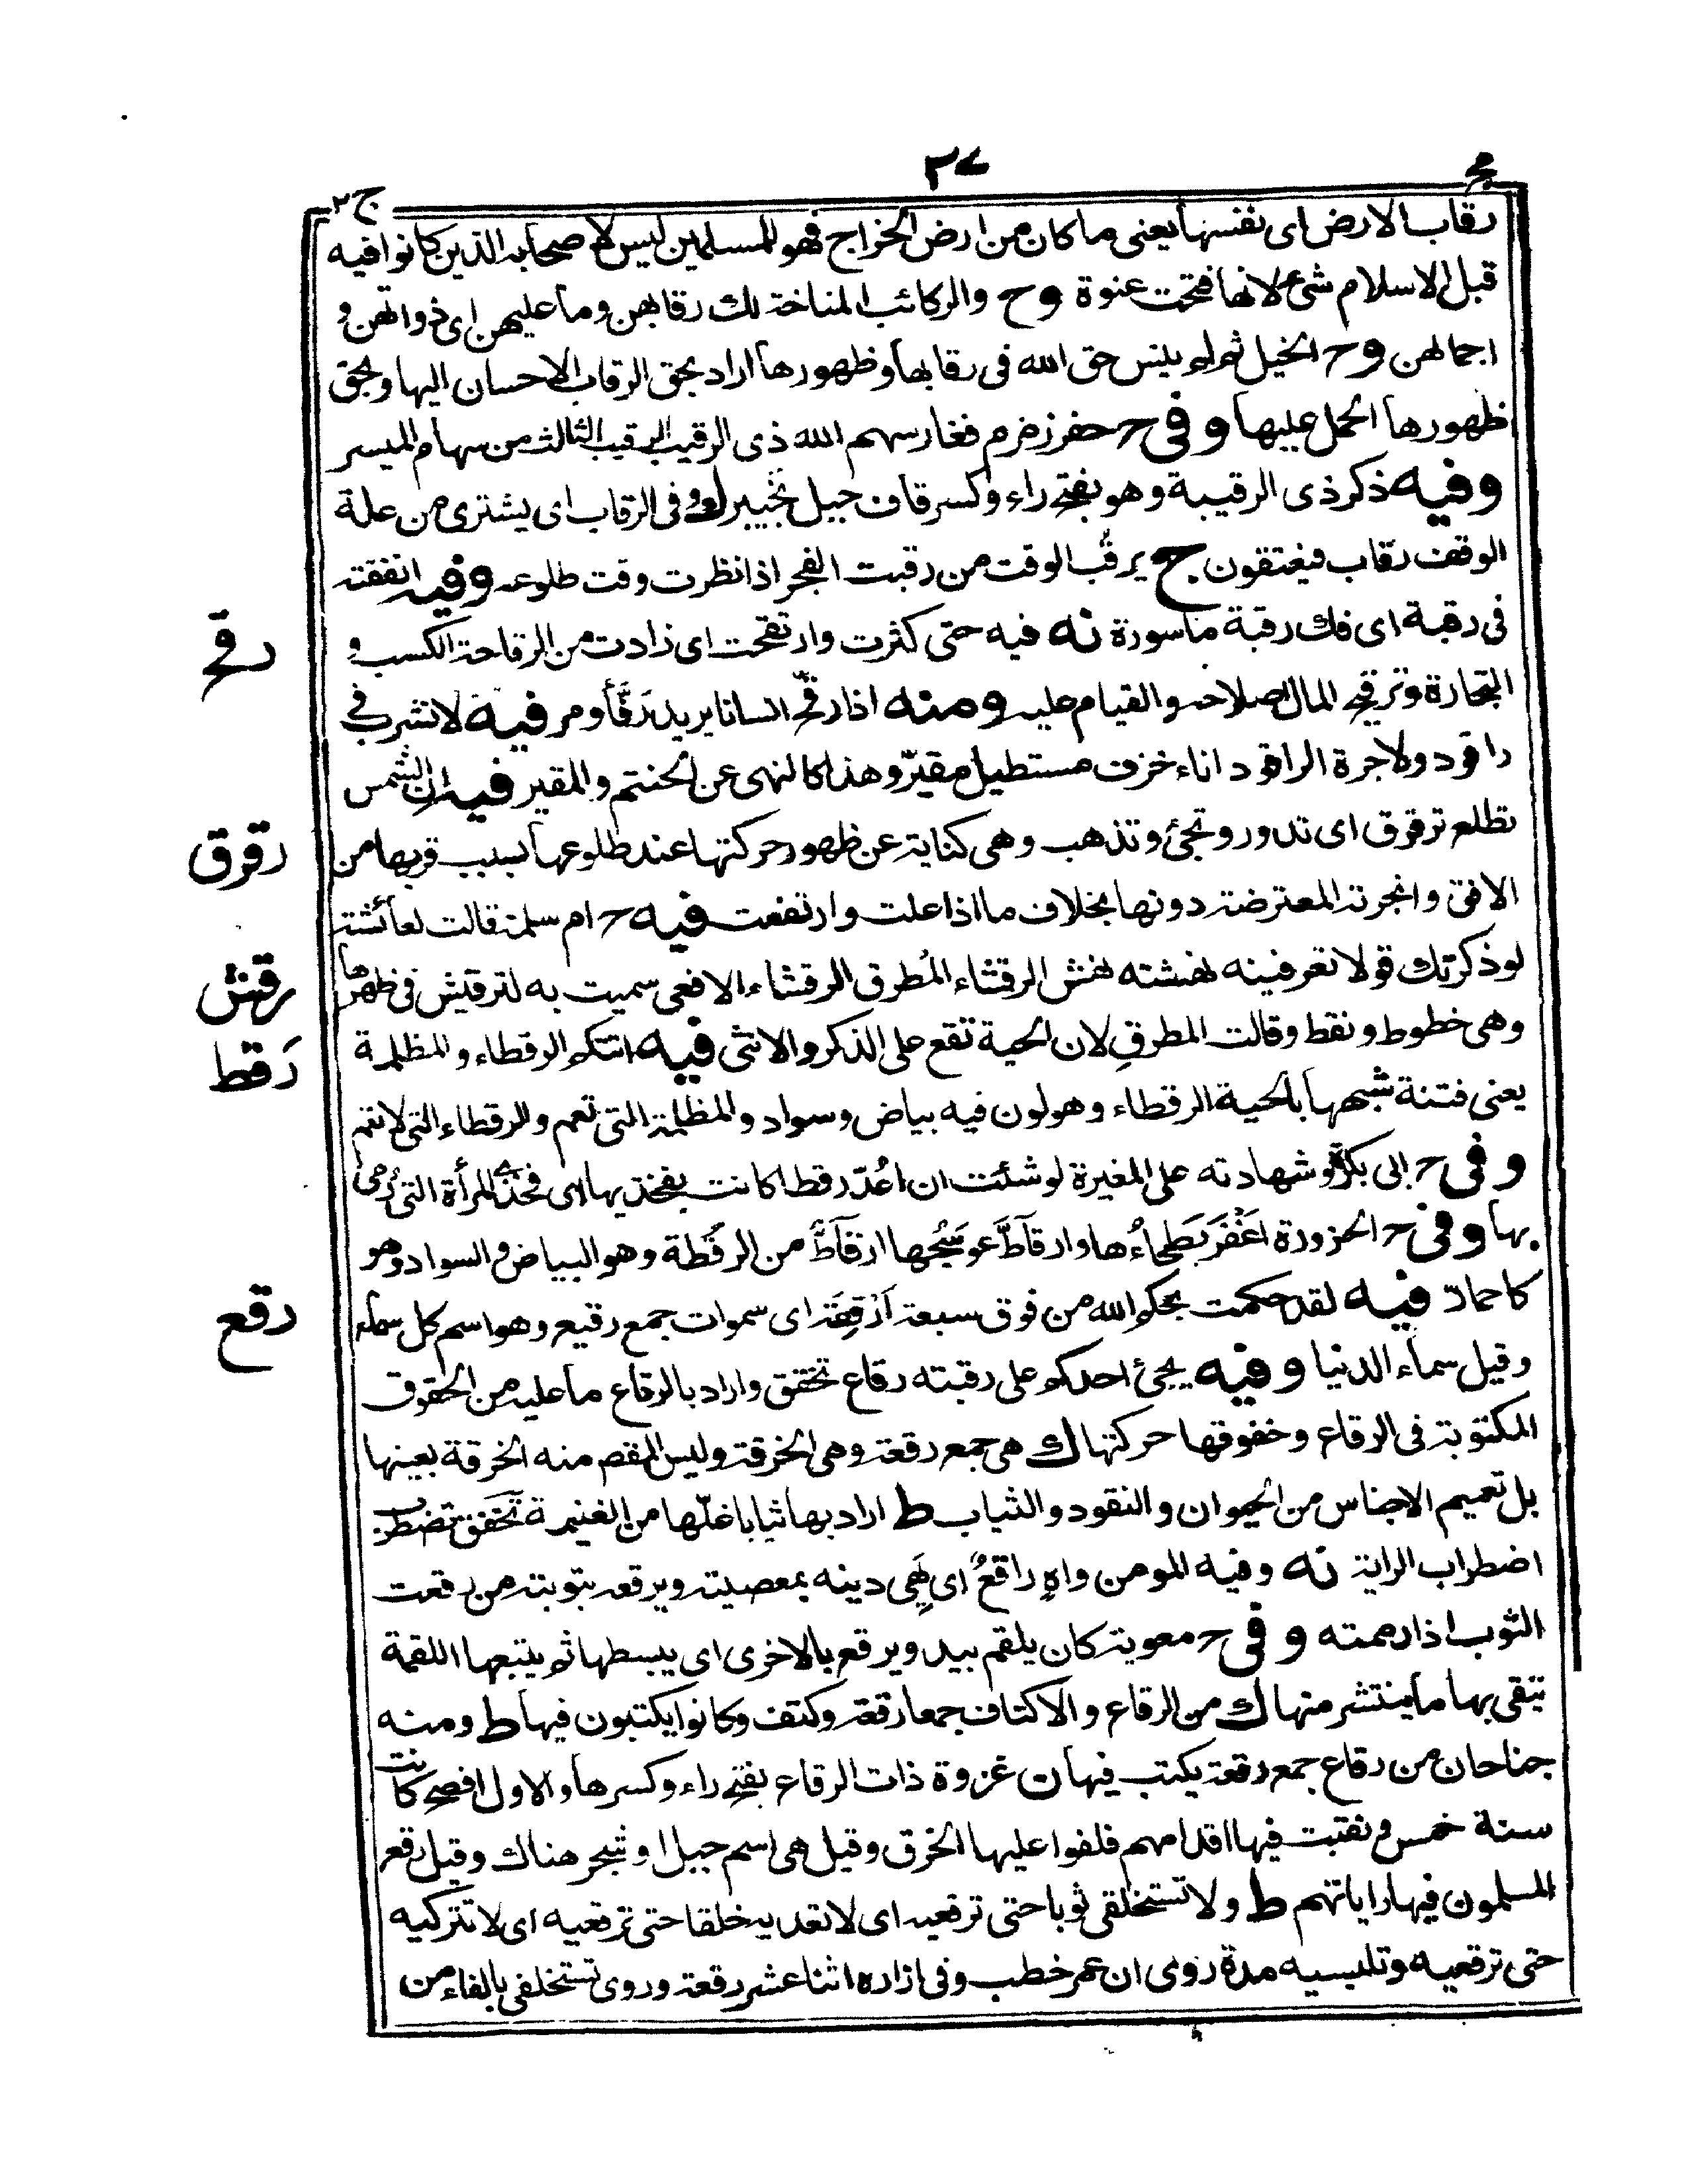 مج
٢٧
ج ٢
رقاب الارض اى نفسها يعنى ما كان من ارض الخراج فهو للمسلمين ليس لاصحابه الذين كانوا فيه
قبل الاسلام شئ لانها فتحت عنوة وح والركائب المناخة لك رقابهن وما عليهن اى ذواتهن و
احمالهن وح الخيل ثم لم ينس حق الله فى رقابها وظهورها اراد بحق الرقاب الاحسان اليها وبحق
ظهورها الحمل عليها وفى ح حفر زمزم فغار سهم الله ذى الرقيب الرقيب الثالث من سهام الميسر
وفيه ذكر ذى الرقيبة وهو بفتح راء وكسر قاف جبل بخيبر او وفى الرقاب اى يشترى من غلة
الوقف رقاب فيعتقون ج يرقب الوقت من رقبت الفجر اذا نظرت وقت طلوعه وفيه انفقته
فى رقبة اى فك رقبة ماسورة نه فيه حتى كثرت وارتقحت اى زادت من الرقاحة الكسب و
التجارة وترقيح المال اصلاحه والقيام عليه ومنه اذا رقح انسانا يريد رفأ ومر فيه لا تشرب فى
راقود ولا جرة الراقود اناء خزف مستطيل مقير وهذا كالنهى عن الحنتم والمقير فيه ان الشمس
تطلع ترقرق اى تدور وتجئ وتذهب وهى كناية عن ظهور حركتها عند طلوعها بسبب قربها من
الافق وانجرته المعترضة دونها بخلاف ما اذا علت وارتفعت فيه ح ام سلمة قالت لعائشة
لو ذكرتك قولا تعرفينه نهشته نهش الرقشاء المطرق الرقشاء الافعى سميت به لترقيش فى ظهرها
وهى خطوط ونقط وقالت المطرق لان الحية تقع على الذكر والانثى فيه اتتكم الرقطاء والمظلمة
يعنى فتنة شبهها بالحية الرقطاء وهو لون فيه بياض وسواد والمظلمة التى تعم والرقطاء التى لا تعم
وفى ح ابى بكرة وشهادته على المغيرة لو شئت ان اعد رقطا كانت بفخذيها اى فخذى المرأة التى رمى
بها وفى ح الحزورة اغفر بطحاءها وارقاط عوسجها ارقاط من الرقطة وهو البياض والسواد وهو
كاحمار فيه لقد حكمت بحكم الله من فوق سبعة ارقعة اى سموات جمع رقيع وهو اسم كل سماء
وقيل سماء الدنيا وفيه يجئ احدكم على رقبته رقاع تخفق واراد بالرقاع ما عليه من الحقوق
المكتوبة فى الرقاع وخفوقها حركتها ك هى جمع رقعة وهى الخرقة وليس المقصم منه الخرقة بعينها
بل تعميم الاجناس من الحيوان والنقود والثياب ط اراد بها ثيابا غلها من الغنيمة تخفق تضطرب
اضطراب الراية نه وفيه المومن واه راقع اى يهى دينه بمعصيته ويرقعه بتوبته من رقعت
الثوب اذا رممته وفى ح معوية كان يلقم بيد ويرقع بالاخرى اى يبسطها ثم يتبعها اللقمة
يتقى بها ما ينتشر منها ك من الرقاع والاكتاف جمعا رقعة وكتف وكانوا يكتبون فيها ط ومنه
جناحان من رقاع جمع رقعة يكتب فيها ن غزوة ذات الرقاع بفتح راء وكسرها والاول افصح كانت
سنة خمس ونقبت فيها اقدامهم فلفوا عليها الخرق وقيل هى اسم جبل او شجر هناك وقيل رقع
المسلمون فيها راياتهم ط ولا تستخلقى ثوبا حتى ترقعيه اى لا تعديه خلقا حتى ترقعيه اى لا تتركيه
حتى ترقعيه وتلبسيه مدة روى ان عمر خطب وفى ازاره اثنا عشر رقعة وروى تستخلفى بالفاء من
رقح
رقرق
رقش
رقط
رقع